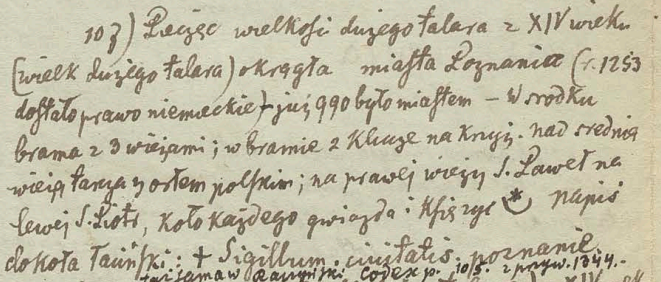 10 z) Pieczęć wielkości dużego talara z XIV wieku
(wielk dużego talara) okrągła miasta Poznania (r. 1253
dostało prawo niemieckie) - już 990 było miastem - W srodku
brama z 3 wieżami; w bramie 2 klucze na krzyż. nad srednią
wieżą tarcza z orłem polskim; na prawej wieży S. Paweł na
lewej S. Piotr, koło każdego gwiazda i księżyc napis
dokoła łaiński: + Sigillum. civitatis. poznanie.
taż sama w Raczyński Codex p. 10/5. z przyw. 1344.-
XIV